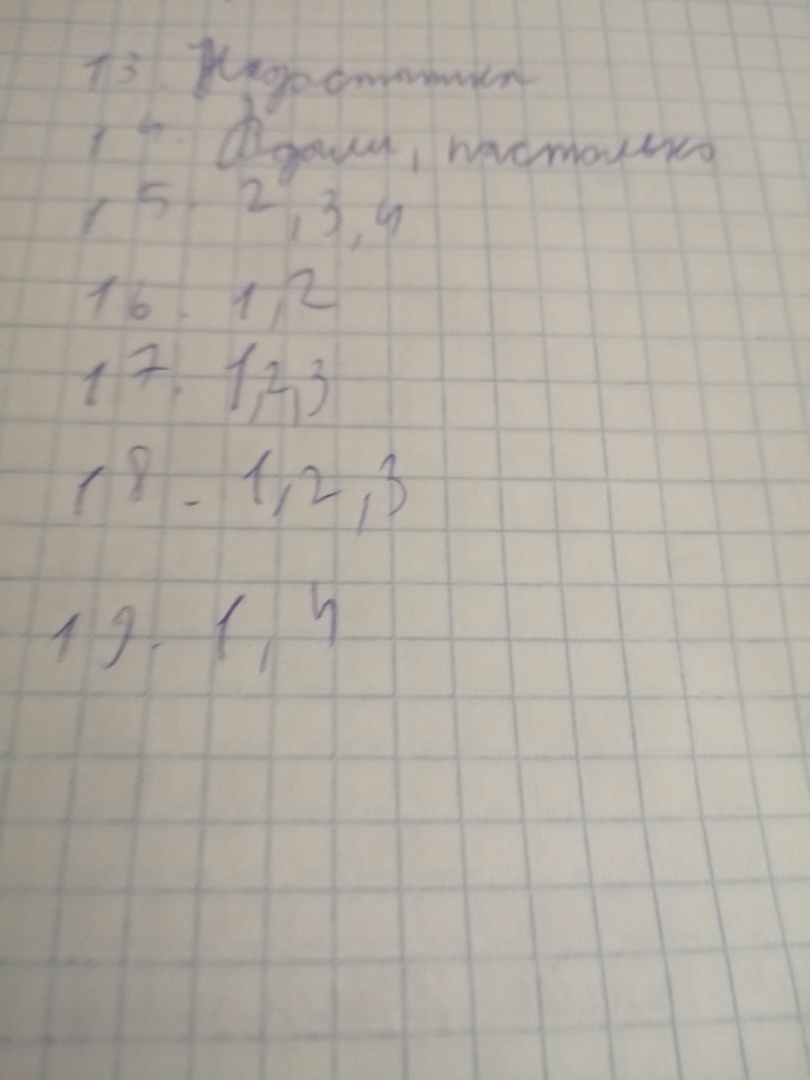 13. Недостатки
14. Вдали, настолько
15. 2,3,4
16. 1,2
17. 1,2,3
18. 1,2,3
19. 1,4